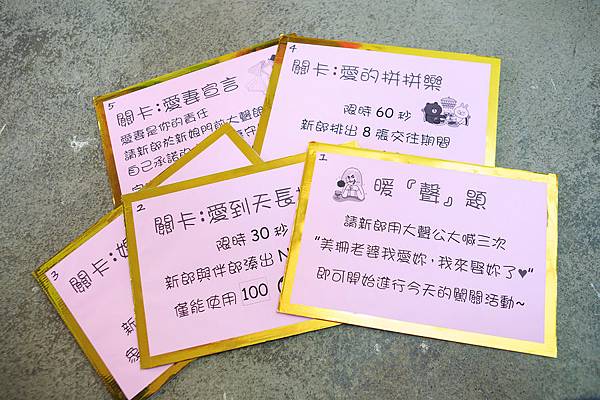 5
關卡:愛妻宣言
愛妻是你的責任
請新郎於新娘門前大聲朗
自己承諾的
4
關卡:愛的拼拼樂
限時 60 秒
新郎排出 8 張交往期間
3
關卡:
新
2
關卡:愛到天長
限時 30 秒
新郎與伴郎湊出 N
僅能使用 100
1
暖『聲』題
請新郎用大聲公大喊三次
"美珊老婆我愛妳,我來娶妳了♥"
即可開始進行今天的闖關活動~